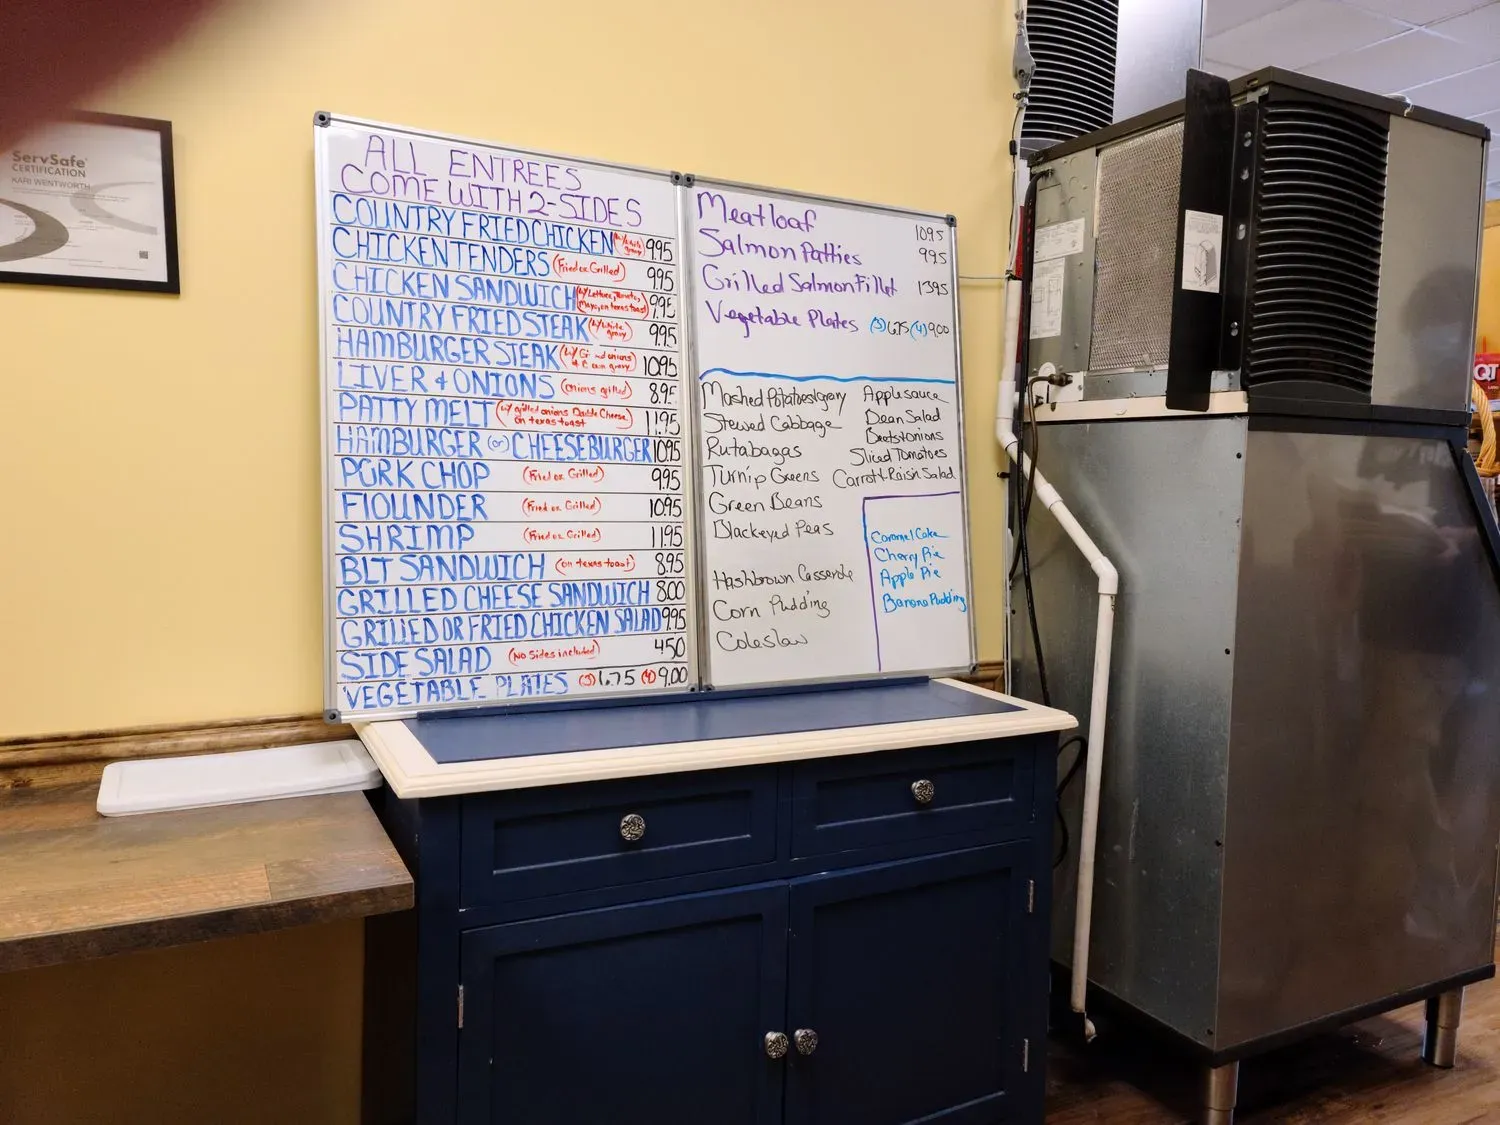 ServSafe
CERTIFICATION
KARI WENTWORTH
ALL ENTREES
COME WITH 2-SIDES
COUNTRY FRIED CHICKEN (w/white gravy) 9.95
CHICKEN TENDERS (Fried or Grilled) 9.95
CHICKEN SANDWICH (w/Lettuce, Tomato, Mayo, on texas toast) 9.95
COUNTRY FRIED STEAK (w/white gravy) 9.95
HAMBURGER STEAK (w/ onions & gravy) 10.95
LIVER & ONIONS (onions grilled) 8.95
PATTY MELT (w/ grilled onions Double Cheese, on texas toast) 11.95
HAMBURGER (or) CHEESEBURGER 10.95
PORK CHOP (Fried or Grilled) 9.95
FLOUNDER (Fried or Grilled) 10.95
SHRIMP (Fried or Grilled) 11.95
BLT SANDWICH (on texas toast) 8.95
GRILLED CHEESE SANDWICH 8.00
GRILLED OR FRIED CHICKEN SALAD 9.95
SIDE SALAD (No Sides included) 4.50
VEGETABLE PLATES (3) 6.75 (4) 9.00
Meatloaf 10.95
Salmon Patties 9.95
Grilled Salmon Fillet 13.95
Vegetable Plates (3) 6.75 (4) 9.00
Mashed Potatoes/gravy
Stewed Cabbage
Rutabagas
Turnip Greens
Green Beans
Blackeyed Peas
Hashbrown Casserole
Corn Pudding
Coleslaw
Applesauce
Bean Salad
Beets+onions
Sliced Tomatoes
Carrot-Raisin Salad
Caramel Cake
Cherry Pie
Apple Pie
Banana Pudding
QT